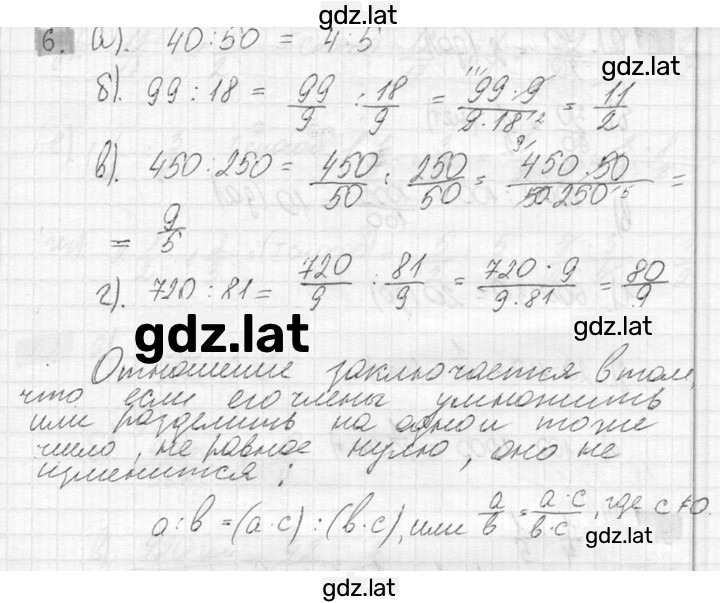 gdz.lat
6. а). 40:50 = 4:5
gdz.lat
б). 99:18 = 99/9 : 18/9 = 99·9/9·18 = 11/2
в). 450:250 = 450/50 : 250/50 = 450·50/50·250 =
= 9/5
г). 720:81 = 720/9 : 81/9 = 720·9/9·81 = 80/9
gdz.lat
gdz.lat
Отношение заключается в том,
что если его члены умножить
или разделить на одно и тоже
число, не равное нулю, оно не
изменится:
а:в = (а·с) : (в·с), или а/в = а·с/в·с, где с≠0.
gdz.lat
gdz.lat